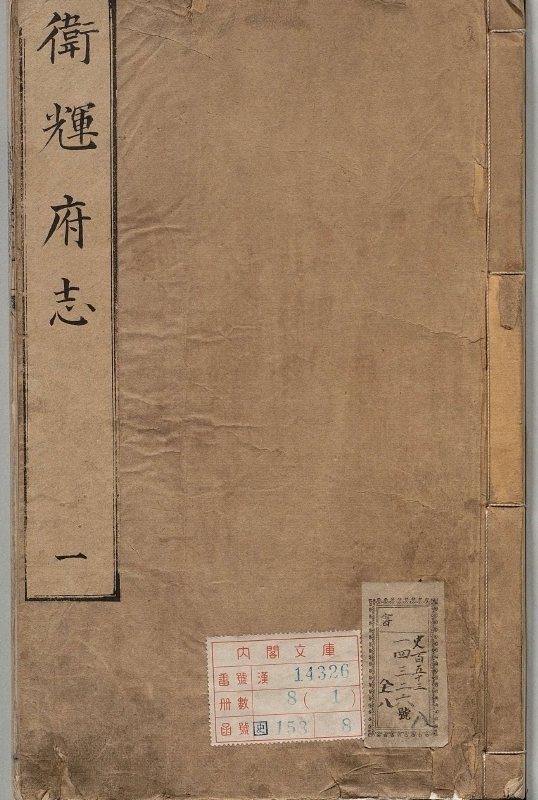 衛輝府志
一
内閣文庫
番號 漢 14326
册數 8(1)
函號 史 153 8
史百五十三
一四三二六號
全八
八